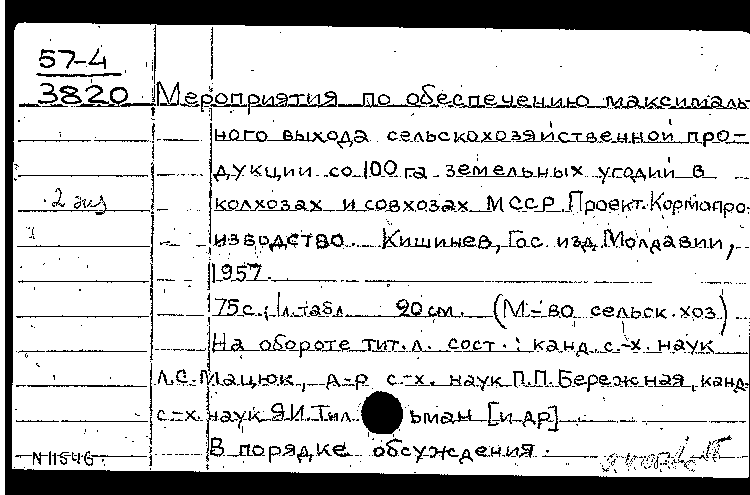 57-4
3820 Мероприятия по обеспечению максималь
ного выхода сельскохозяйственной про-
дукции со 100 га земельных угодий в
2 экз колхозах и совхозах МССР. Проект. Кормопро-
изводство. Кишинев, Гос. изд. Молдавии,
1957.
75 с.; 1 л. табл. 20 см. (М-во сельск. хоз)
На обороте тит. л. сост.: канд. с.-х. наук
Л.С. Мацюк, д-р с.-х. наук П.П. Бережная, канд.
с.-х. наук Я.И. Тил ьман [и др]
В порядке обсуждения.
N 11546.